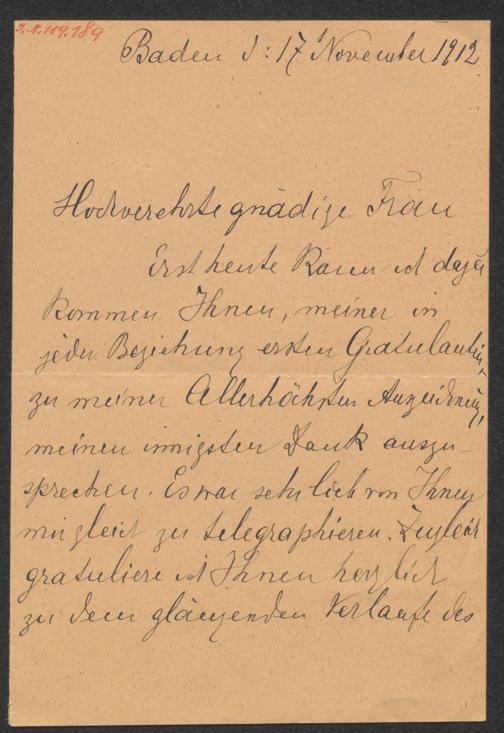 I.N.119.189
Baden d: 17 November 1912
Hochverehrte gnädige Frau
Erst heute kann ich dazu
kommen Ihnen, meiner in
jeder Beziehung ersten Gratulantin
zu meiner Allerhöchsten Auszeichnung,
meinen innigsten Dank auszu-
sprechen. Es war sehr lieb von Ihnen
mir gleich zu telegraphieren. Zugleich
gratuliere ich Ihnen herzlich
zu dem glänzenden Verlaufe des